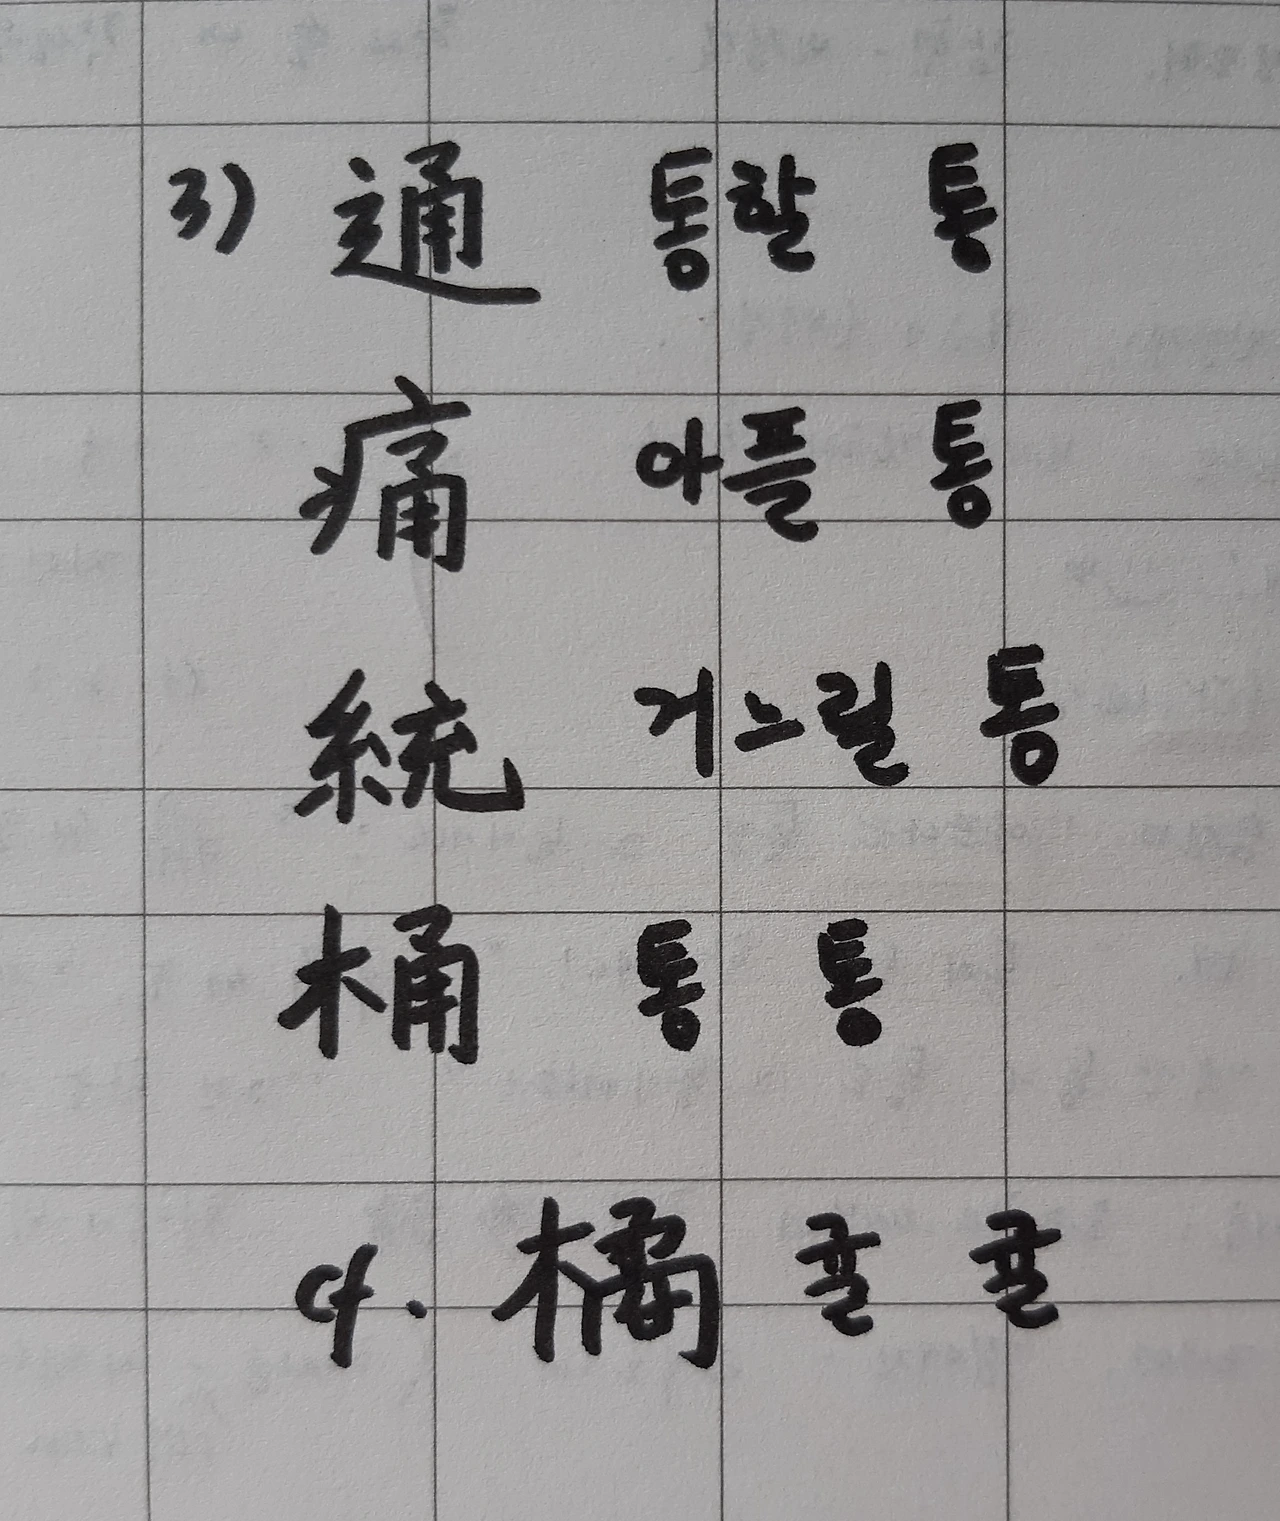 3) 通 통할 통
痛 아플 통
統 거느릴 통
桶 통 통
다. 橘 귤 귤